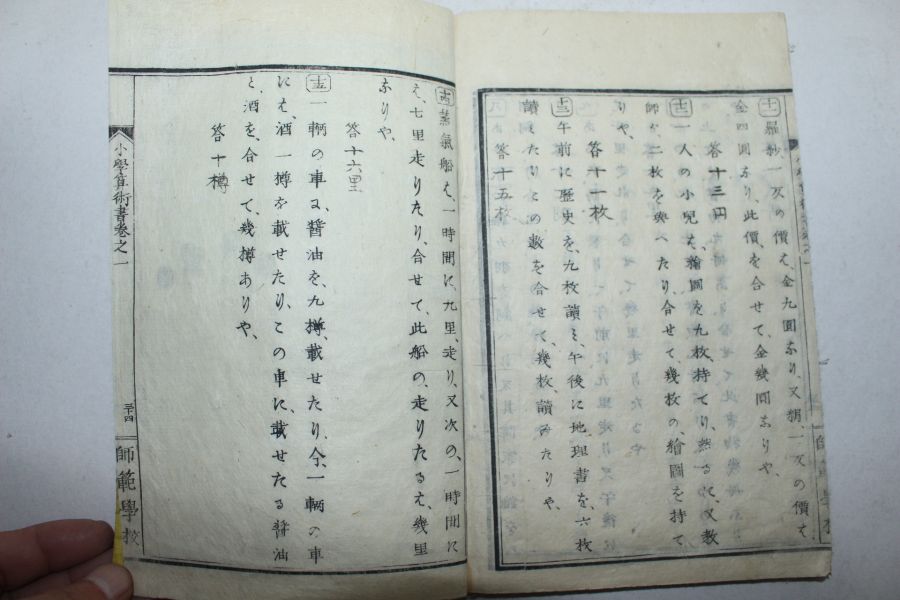 十一 羅紗、一丈の價ハ、金九圓なり、又絹、一丈の價ハ
金四圓なり、此價、を合せて、金幾圓なりや、
答十三円
十二 一人の小兒ハ、繪圖を九枚、持てり、然るに、又教
師より、二枚を與へたり、合せて、幾枚の、繪圖を持て
りや、
答十一枚
十三 午前に歴史を、九枚讀ミ、午後に地理書を、六枚
讀ミたり、この數を合せて、幾枚、讀ミたりや、
答十五枚
十四 蒸氣船ハ、一時間に、九里、走り、又次の、一時間に
ハ、七里走りたり、合せて、此船の、走りたるハ、幾里
なりや、
答十六里
十五 一輌の車に、醤油を、九樽、載せたり、今、一輌の車
にハ、酒一樽を載せたり、この車に、載せたる醤油
と、酒を、合せて、幾樽ありや、
答十樽
小學算術書巻之一
二十四
師範學校